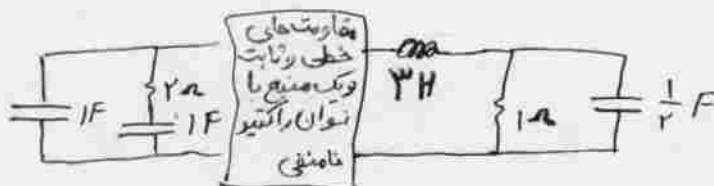 مقاومت‌های
خطی و ثابت
ویک منبع با
توان راکتیو
نامنفی
1F
۲Ω
1F
۳H
1Ω
1/۲ F